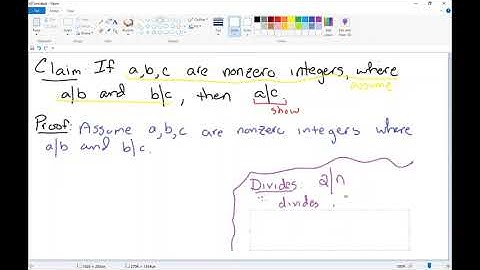 Claim If a,b,c are nonzero integers, where
assume
a|b and b|c, then a|c.
show
Proof: Assume a,b,c are nonzero integers where
a|b and b|c.
Divides: 2|n
divides